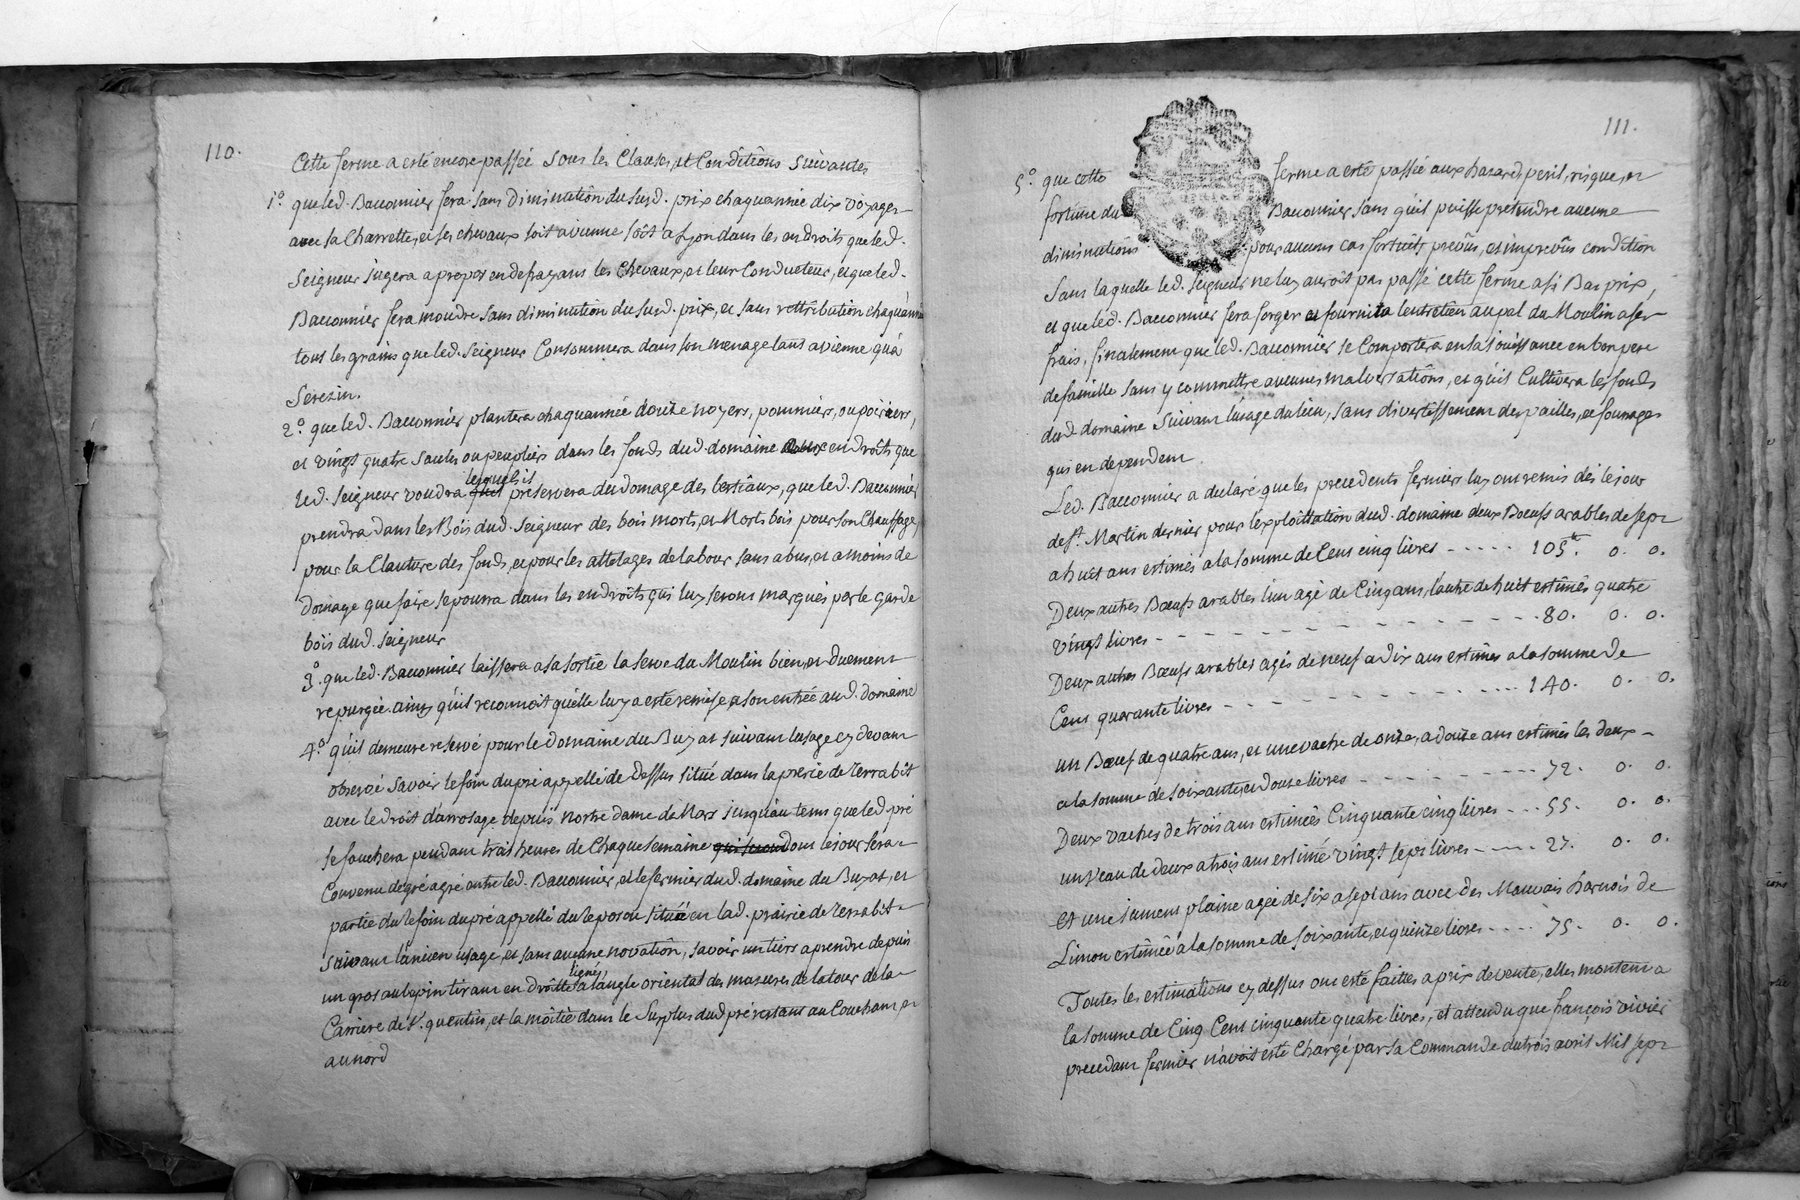 110.
Cette ferme a esté encore passée sous les Clauses, et Conditions suivantes
1.º que led. Bauonnier fera sans diminution du susd. prix chaquannée dix voyages
avec sa Charrette, et ses chevaux soit a vienne soit a Lyon dans les endroits que led.
Seigneur jugera a propos en defrayans les Chevaux, et leur Conducteur, et que led.
Bauonnier fera moudre sans diminution du susd. prix, et sans rettribution chaquannée
tous les grains que led. Seigneur Consommera dans son menage tant a vienne qu'a
Serezin.
2.º que led. Bauonnier plantera chaquannée douze noyers, pommiers, ou poiriers,
et vingt quatre saules ou peupliers dans les fonds dud. domaine endroits que
led. Seigneur voudra lesquels il preservera du domage des bestiaux, que led. Bauonnier
prendra dans les Bois dud. Seigneur des bois morts, et Morts bois pour son Chauffage,
pour la Clauture des fonds, et pour les attelages de labour sans abus, et a moins de
domage que faire se pourra dans les endroits qui luy seront marqués par le garde
bois dud. Seigneur
3.º que led. Bauonnier laissera a sa sortie la serve du Moulin bien, et duement
repurgée. ainsy qu'il reconnoit quelle luy a esté remise a son entrée aud. domaine
4.º quil demeure reservé pour le domaine du Buyat suivant lusage cy devant
observé savoir le foin du pré appellé de Dessus situé dans la prerie de Terrabit
avec le droit d'arrosage depuis nortre dame de Mars jusqu'au tems que led pré
se fauchera pendant trois heures de Chaque semaine dont le jour sera
Convenu de gré a gré entre led. Bauonnier, et le fermier dud. domaine du Buyat, et
partie du foin du pré appellé du reposou située en lad. prairie de Terrabit
suivant l'ancien usage, et sans aucune novation, savoir un tiers a prendre depuis
un gros aulepin tirant en droitte ligne a l'angle oriental des mazures de la tour de la
Carriere de St. quentin, et la moitié dans le Surplus dud pré restant au Couchant, et
au nord
111.
5.º que cette ferme a esté passée aux hazard, peril, risque, et
fortune du Bauonnier sans qu'il puisse pretendre aucune
diminutions pour aucuns cas fortuits prevûs, et imprevûs condition
sans laquelle led. Seigneur ne luy auroit pas passé cette ferme a si Bas prix,
et que led. Bauonnier fera forger et fournira lentretien au pal du Moulin a ses
frais. finalement que led. Bauonnier se Comportera en sa jouissance en bon pere
de famille sans y commettre aucunes malversations, et qu'il Cultivera les fonds
dud. domaine suivant l'usage du lieu, sans divertissement des pailles, et fourages
qui en dependent
Led. Bauonnier a declaré que les precedents fermiers luy ont remis dès le jour
de St. Martin dernier pour l'exploitation dud. domaine deux Boeufs arables de sept
a huit ans estimés a la somme de Cent cinq livres - - - - - 105tt. 0. 0.
Deux autres Boeufs arables l'un agé de Cinq ans, l'autre de huit estimés quatre
vingt livres - - - - - - - - - - - - - 80. 0. 0.
Deux autres Boeufs arables agés de neuf a dix ans estimés a la somme de
Cent quarante livres - - - - - - - - - - - - 140. 0. 0.
un Boeuf de quatre ans, et une vache de onze, a douze ans estimés les deux
a la somme de soixante, et douze livres - - - - - - - - - 72. 0. 0.
Deux vaches de trois ans estimées Cinquante cinq livres - - - 55. 0. 0.
un veau de deux a trois ans estimé vingt sept livres - - - - 27. 0. 0.
et une jument plaine agée de six a sept ans avec des Mauvais harnois de
Limon estimée a la somme de soixante, et quinze livres - - - - 75. 0. 0.
Toutes les estimations cy dessus ont esté faittes a prix de vente, elles montent a
la somme de Cinq Cent cinquante quatre livres, et attendu que françois vivier
precedant fermier n'avoit esté Chargé par sa Commande du trois avril Mil sept